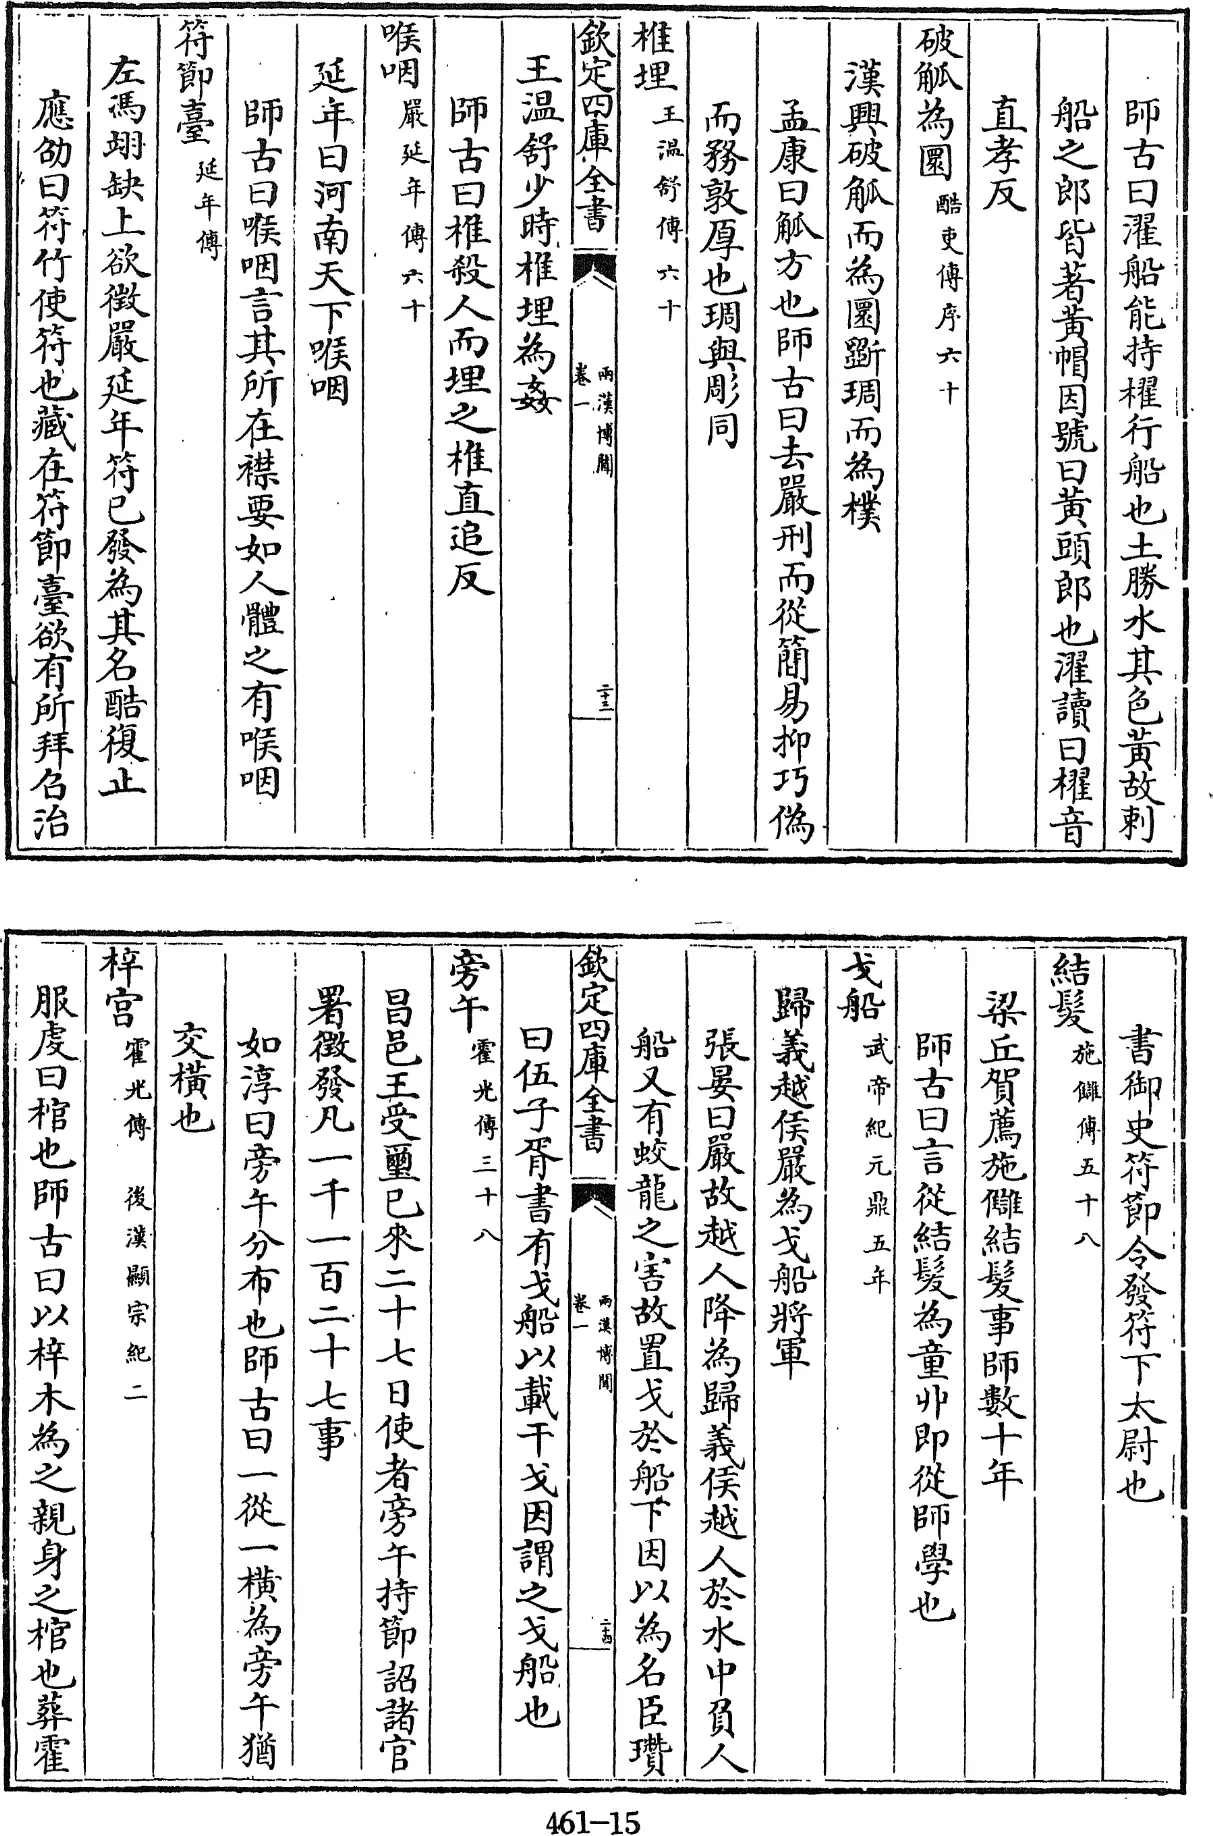 師古曰濯船能持櫂行船也土勝水其色黃故刺
船之郎皆著黃帽因號曰黃頭郎也濯讀曰櫂音
直孝反
破觚為圜酷吏傳序六十
漢興破觚而為圜斵琱而為樸
孟康曰觚方也師古曰去嚴刑而從簡易抑巧偽
而務敦厚也琱與彫同
椎埋王温舒傳六十
欽定四庫全書
兩漢博聞
卷一
二十三
王温舒少時椎埋為姦
師古曰椎殺人而埋之椎直追反
喉咽嚴延年傳六十
延年曰河南天下喉咽
師古曰喉咽言其所在襟要如人體之有喉咽
符節臺延年傳
左馮翊缺上欲徵嚴延年符已發為其名酷復止
應劭曰符竹使符也藏在符節臺欲有所拜召治
書御史符節令發符下太尉也
結髮施讎傳五十八
梁丘賀薦施讎結髮事師數十年
師古曰言從結髮為童丱即從師學也
戈船武帝紀元鼎五年
歸義越侯嚴為戈船將軍
張晏曰嚴故越人降為歸義侯越人於水中負人
船又有蛟龍之害故置戈於船下因以為名臣瓚
欽定四庫全書
兩漢博聞
卷一
二十四
曰伍子胥書有戈船以載干戈因謂之戈船也
旁午霍光傳三十八
昌邑王受璽已來二十七日使者旁午持節詔諸官
署徵發凡一千一百二十七事
如淳曰旁午分布也師古曰一從一橫為旁午猶
交橫也
梓宫霍光傳 後漢顯宗紀二
服虔曰棺也師古曰以梓木為之親身之棺也葬霍
461-15